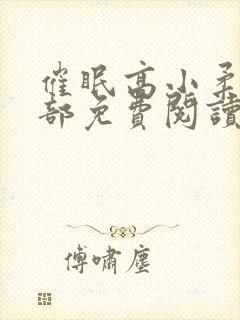 催眠高小柔
部免費閱讀
傅嘯塵